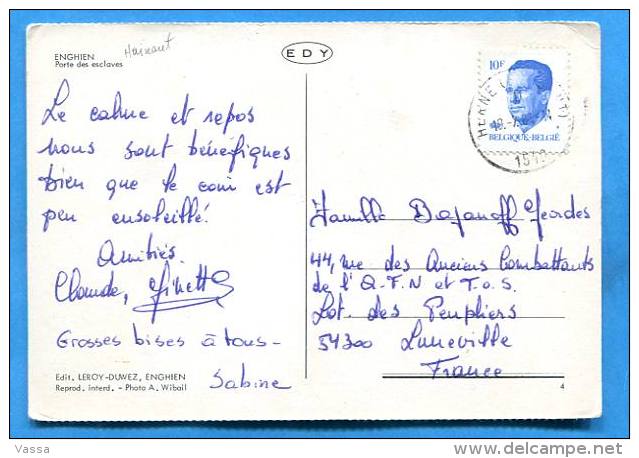 ENGHIEN
Porte des esclaves
Hainaut
EDY
10F
BELGIQUE-BELGIË
HERNE
Le calme et repos
nous sont bénéfiques
bien que le coin est
peu ensoleillé.
Amitiés.
Claude, Ginette
Grosses bises à tous -
Sabine
Famille
44, rue des Anciens Combattants
de l'A.F.N et T.O.S.
Lot. des Peupliers
54300 Luneville
France
Edit. LEROY-DUWEZ, ENGHIEN
Reprod. interd. - Photo A. Wibail
4
Vassa
www.delcampe.net